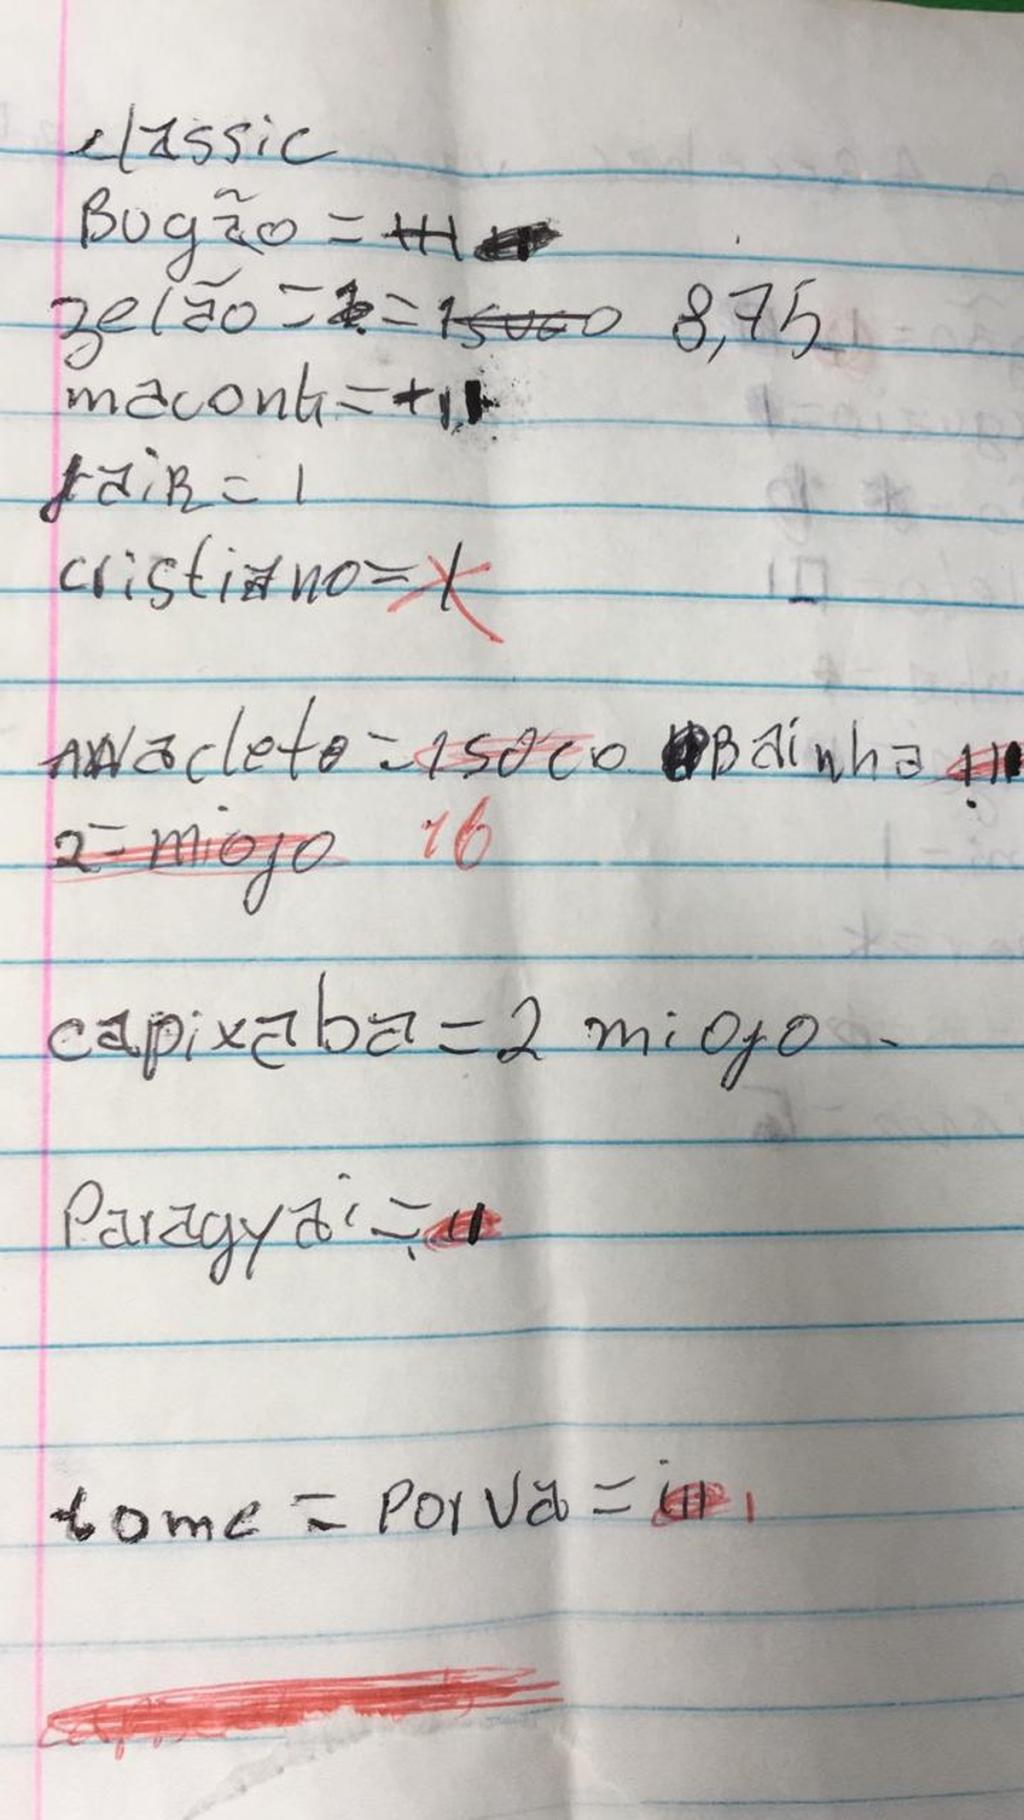 classic
Bugão =
zelão = = 1 soco 8,75
macon =
jaiR = 1
cristiano =
Anacleto = 1 soco Bainha
2 = miojo 16
capixaba = 2 miojo
Paragyai =
tome = Porva =